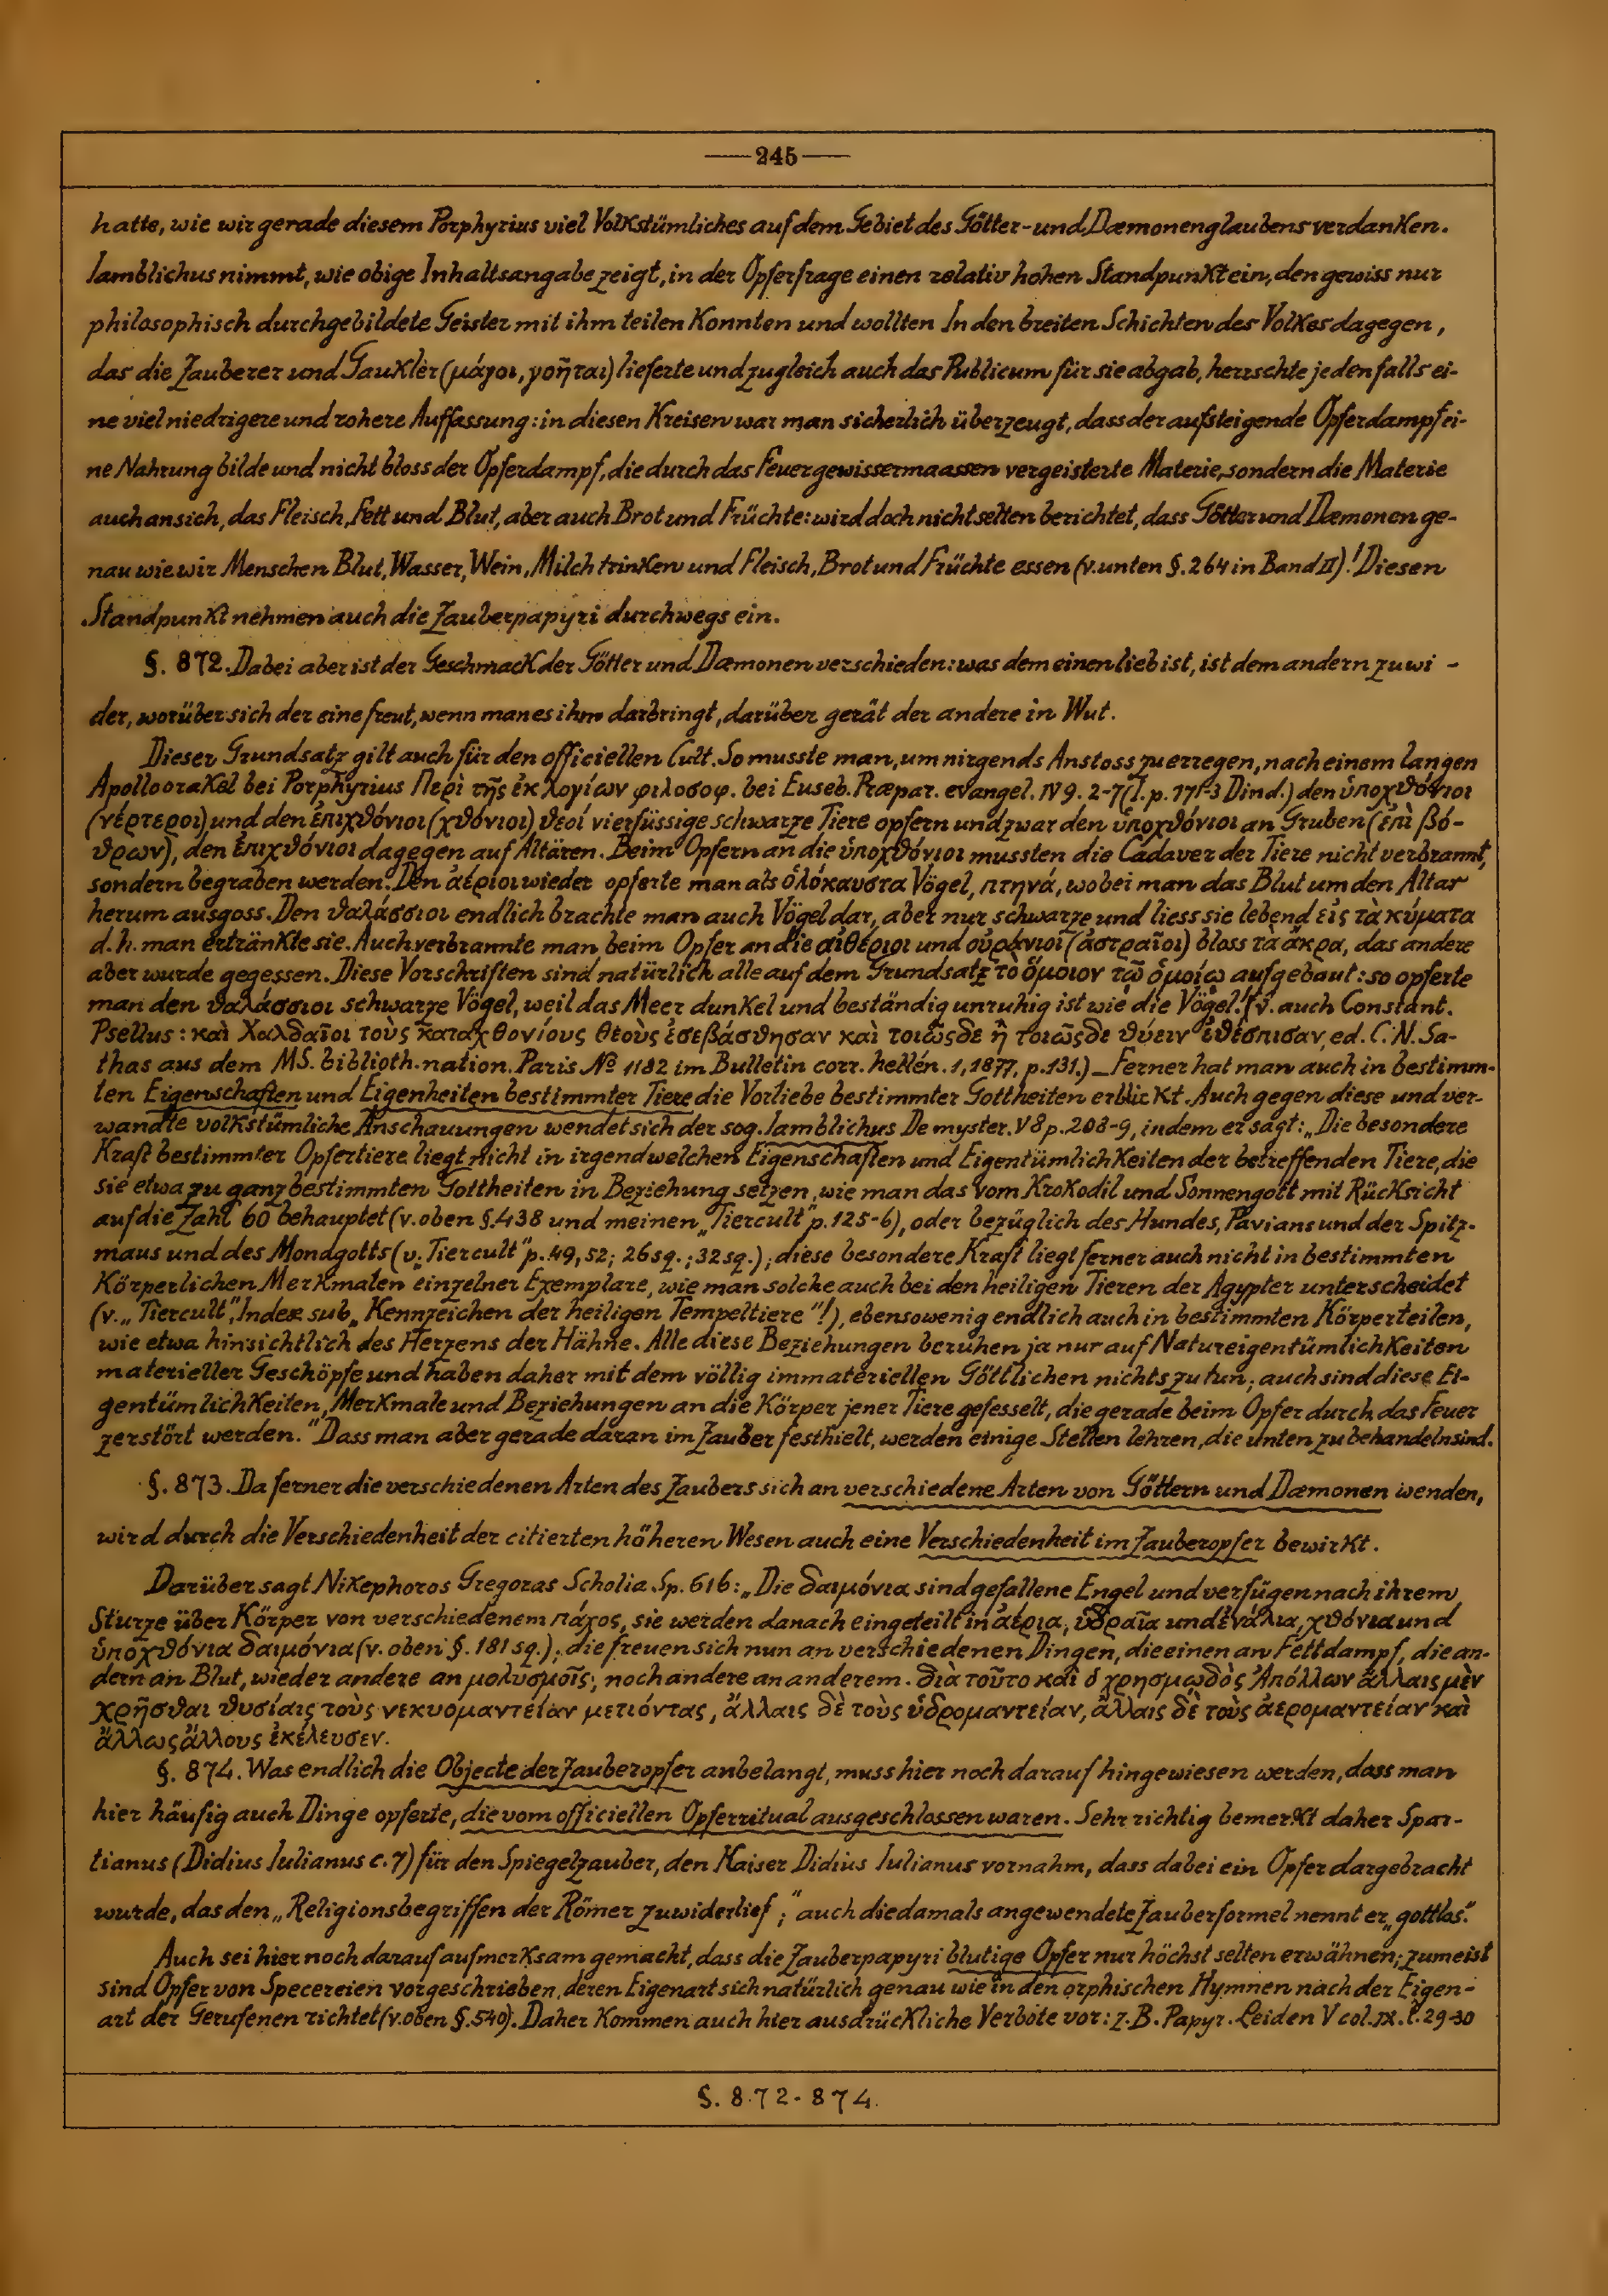 —245—
hatte, wie wir gerade diesem Porphyrius viel Volkstümliches auf dem Gebiet des Götter- und Dæmonenglaubens verdanken.
Iamblichus nimmt, wie obige Inhaltsangabe zeigt, in der Opferfrage einen relativ hohen Standpunkt ein, den gewiss nur
philosophisch durchgebildete Geister mit ihm teilen konnten und wollten In den breiten Schichten des Volkes dagegen,
das die Zauberer und Gaukler (μάγοι, γοῆται) lieferte und zugleich auch das Publicum für sie abgab, herrschte jedenfalls ei-
ne viel niedrigere und rohere Auffassung: in diesen Kreisen war man sicherlich überzeugt, dass der aufsteigende Opferdampf ei-
ne Nahrung bilde und nicht bloss der Opferdampf, die durch das Feuer gewissermaassen vergeisterte Materie, sondern die Materie
auch an sich, das Fleisch, Fett und Blut, aber auch Brot und Früchte: wird doch nicht selten berichtet, dass Götter und Dæmonen ge-
nau wie wir Menschen Blut, Wasser, Wein, Milch trinken und Fleisch, Brot und Früchte essen (v. unten §. 264 in Band II)! Diesen
Standpunkt nehmen auch die Zauberpapyri durchwegs ein.
§. 872. Dabei aber ist der Geschmack der Götter und Dæmonen verschieden: was dem einen lieb ist, ist dem andern zuwi-
der, worüber sich der eine freut, wenn man es ihm darbringt, darüber gerät der andere in Wut.
Dieser Grundsatz gilt auch für den officiellen Cult. So musste man, um nirgends Anstoss zu erregen, nach einem langen
Apolloorakel bei Porphyrius Περὶ τῆς ἐκ λογίων φιλοσοφ. bei Euseb. Præpar. evangel. IV 9. 2-7 (I. p. 171-3 Dind.) den ὑποχθόνιοι
(νέρτεροι) und den ἐπιχθόνιοι (χθόνιοι) θεοί vierfüssige schwarze Tiere opfern und zwar den ὑποχθόνιοι an Gruben (ἐπὶ βό-
θρων), den ἐπιχθόνιοι dagegen auf Altären. Beim Opfern an die ὑποχθόνιοι mussten die Cadaver der Tiere nicht verbrannt,
sondern begraben werden. Den ἀέριοι wieder opferte man als ὁλόκαυστα Vögel, πτηνά, wobei man das Blut um den Altar
herum ausgoss. Den θαλάσσιοι endlich brachte man auch Vögel dar, aber nur schwarze und liess sie lebend εἰς τὰ κύματα
d. h. man ertränkte sie. Auch verbrannte man beim Opfer an die αἰθέριοι und οὐράνιοι (ἀστραῖοι) bloss τὰ ἄκρα, das andere
aber wurde gegessen. Diese Vorschriften sind natürlich alle auf dem Grundsatz τὸ ὅμοιον τῷ ὁμοίῳ aufgebaut: so opferte
man den θαλάσσιοι schwarze Vögel, weil das Meer dunkel und beständig unruhig ist wie die Vögel! (v. auch Constant.
Psellus: καὶ Χαλδαῖοι τοὺς καταχθονίους θεοὺς ἐσεβάσθησαν καὶ τοιῶςδε ἢ τοιῶςδε θύειν ἐθέσπισαν, ed. C. N. Sa-
thas aus dem MS. biblioth. nation. Paris № 1182 im Bulletin corr. hellén. 1, 1877, p. 131.) — Ferner hat man auch in bestimm-
ten Eigenschaften und Eigenheiten bestimmter Tiere die Vorliebe bestimmter Gottheiten erblickt. Auch gegen diese und ver-
wandte volkstümliche Anschauungen wendet sich der sog. Iamblichus De myster. V 8 p. 208-9, indem er sagt: „Die besondere
Kraft bestimmter Opfertiere liegt nicht in irgendwelchen Eigenschaften und Eigentümlichkeiten der betreffenden Tiere, die
sie etwa zu ganz bestimmten Gottheiten in Beziehung setzen, wie man das vom Krokodil und Sonnengott mit Rücksicht
auf die Zahl 60 behauptet (v. oben §. 438 und meinen „Tiercult" p. 125-6), oder bezüglich des Hundes, Pavians und der Spitz-
maus und des Mondgotts (v. „Tiercult" p. 49, 52; 26 sq.; 32 sq.); diese besondere Kraft liegt ferner auch nicht in bestimmten
Körperlichen Merkmalen einzelner Exemplare, wie man solche auch bei den heiligen Tieren der Ägypter unterscheidet
(v. „Tiercult", Index sub „Kennzeichen der heiligen Tempeltiere"!), ebensowenig endlich auch in bestimmten Körperteilen,
wie etwa hinsichtlich des Herzens der Hähne. Alle diese Beziehungen beruhen ja nur auf Natureigentümlichkeiten
materieller Geschöpfe und haben daher mit dem völlig immateriellen Göttlichen nichts zu tun; auch sind diese Ei-
gentümlichkeiten, Merkmale und Beziehungen an die Körper jener Tiere gefesselt, die gerade beim Opfer durch das Feuer
zerstört werden." Dass man aber gerade daran im Zauber festhielt, werden einige Stellen lehren, die unten zu behandeln sind.
§. 873. Da ferner die verschiedenen Arten des Zaubers sich an verschiedene Arten von Göttern und Dæmonen wenden,
wird durch die Verschiedenheit der citierten höheren Wesen auch eine Verschiedenheit im Zauberopfer bewirkt.
Darüber sagt Nikephoros Gregoras Scholia Sp. 616: „Die δαιμόνια sind gefallene Engel und verfügen nach ihrem
Sturze über Körper von verschiedenem πάχος, sie werden danach eingeteilt in ἀέρια, ὑδραῖα und ἐνάλια, χθόνια und
ὑποχθόνια δαιμόνια (v. oben §. 181 sq.); die freuen sich nun an verschiedenen Dingen, die einen an Fettdampf, die an-
dern an Blut, wieder andere an μολυσμοῖς, noch andere an anderem. διὰ τοῦτο καὶ ὁ χρησμῳδὸς Ἀπόλλων ἄλλαις μὲν
χρῆσθαι θυσίαις τοὺς νεκυομαντείαν μετιόντας, ἄλλαις δὲ τοὺς ὑδρομαντείαν, ἄλλαις δὲ τοὺς ἀερομαντείαν καὶ
ἄλλως ἄλλους ἐκέλευσεν.
§. 874. Was endlich die Objecte der Zauberopfer anbelangt, muss hier noch darauf hingewiesen werden, dass man
hier häufig auch Dinge opferte, die vom officiellen Opferritual ausgeschlossen waren. Sehr richtig bemerkt daher Spar-
tianus (Didius Iulianus c. 7) für den Spiegelzauber, den Kaiser Didius Iulianus vornahm, dass dabei ein Opfer dargebracht
wurde, das den „Religionsbegriffen der Römer zuwiderlief;" auch die damals angewendete Zauberformel nennt er „gottlos".
Auch sei hier noch darauf aufmerksam gemacht, dass die Zauberpapyri blutige Opfer nur höchst selten erwähnen; zumeist
sind Opfer von Specereien vorgeschrieben, deren Eigenart sich natürlich genau wie in den orphischen Hymnen nach der Eigen-
art der Gerufenen richtet (v. oben §. 540). Daher kommen auch hier ausdrückliche Verbote vor: z. B. Papyr. Leiden V col. IX. l. 29-30
§. 872-874.